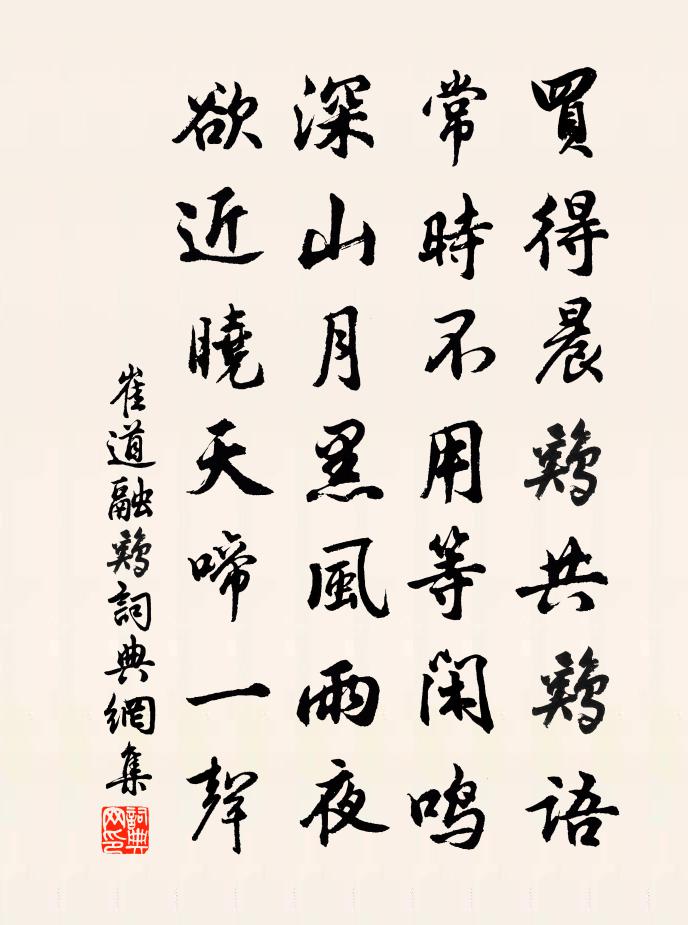 買得晨鷄共鷄語
常時不用等閑鳴
深山月黑風雨夜
欲近曉天啼一聲
崔道融鷄詞典網集
詞典網印